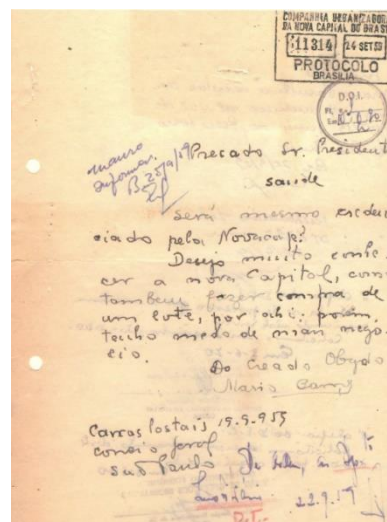 COMPANHIA URBANIZADORA
DA NOVA CAPITAL DO BRASI
11314 24 SET 59
PROTOCOLO
BRASÍLIA
D.O.I.
Mauro
Informar.
Precado Sr. President
saude
Será mesmo
ciado pela Novacap?
Desejo muito conhe
cer a nova Capital, com
tambem fazer compra de
um lote, por ahi: porém,
tenho medo de mau nego
cio.
Do Creado Obgdo
Mario
Caixas Postais 19.9.959
correio geral
São Paulo
22.9.59